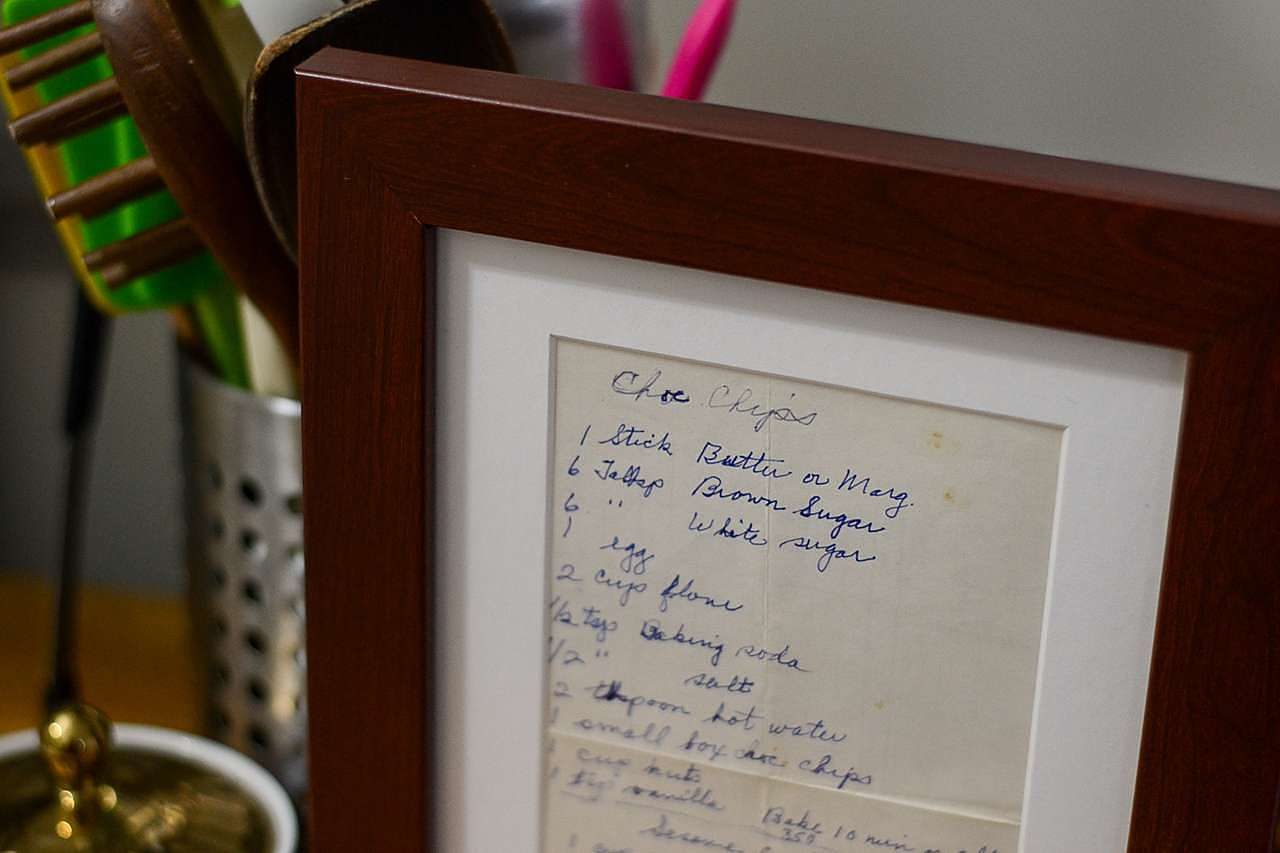 Choc Chips
1 Stick Butter or Marg.
6 Tablsp Brown Sugar
6 " White sugar
1 egg
2 cups flour
1/2 tsp Baking soda
1/2 " salt
2 teaspoon hot water
1 small box choc chips
1 cup nuts
1 tsp vanilla Bake 10 min
350
1